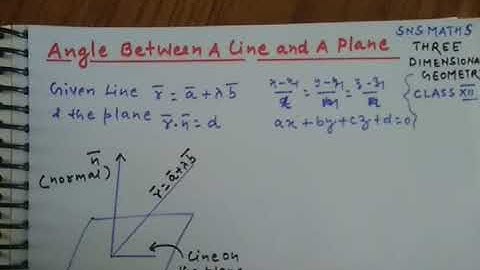 SNS MATHS
Angle Between A Line and A Plane
THREE
DIMENSIONAL
GEOMETRY
CLASS XII
Given Line r̄ = ā + λb̄
& the plane r̄·n̄ = d
x-x₁/l = y-y₁/m = z-z₁/n
ax + by + cz + d = 0
n̄
(normal)
r̄ = ā + λb̄
Line on
plane